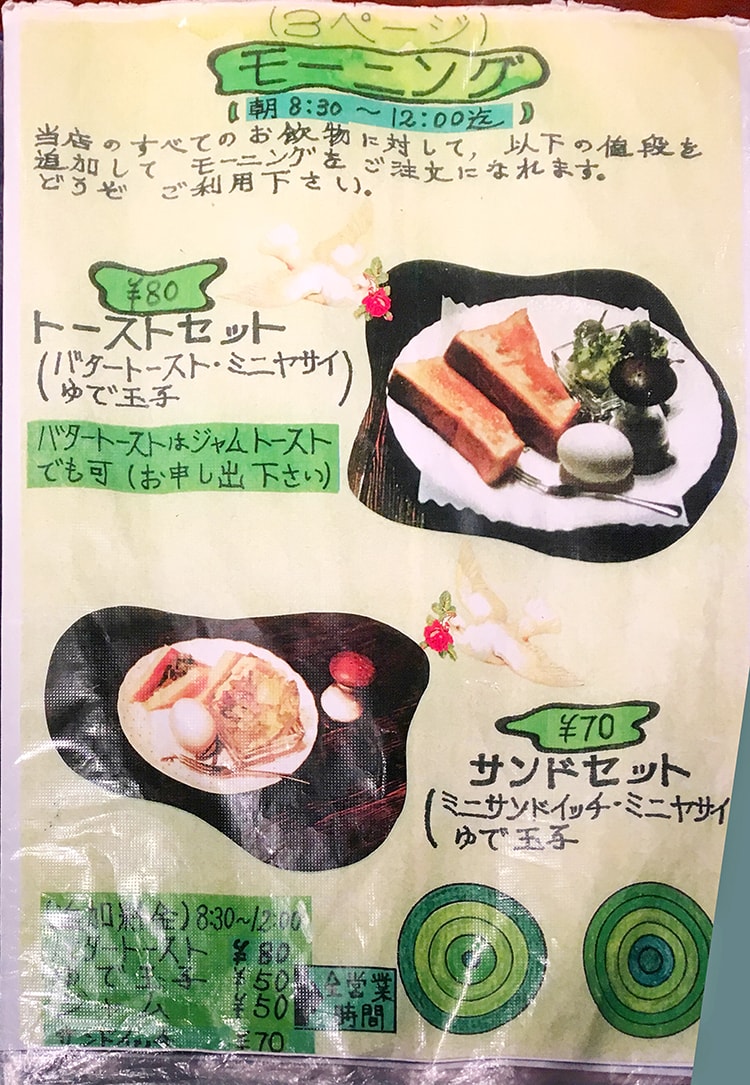 (3ページ)
モーニング
(朝8:30～12:00迄)
当店のすべてのお飲物に対して、以下の値段を
追加して モーニングを ご注文になれます。
どうぞ ご利用下さい。
¥80
トーストセット
(バタートースト・ミニヤサイ)
ゆで玉子
バタートーストはジャムトースト
でも可(お申し出下さい)
¥70
サンドセット
(ミニサンドイッチ・ミニヤサイ
ゆで玉子
(追加料金) 8:30～12:00
バタートースト ¥80
ゆで玉子 ¥50
ジャム ¥50
サンドイッチ ¥70
全営業
時間